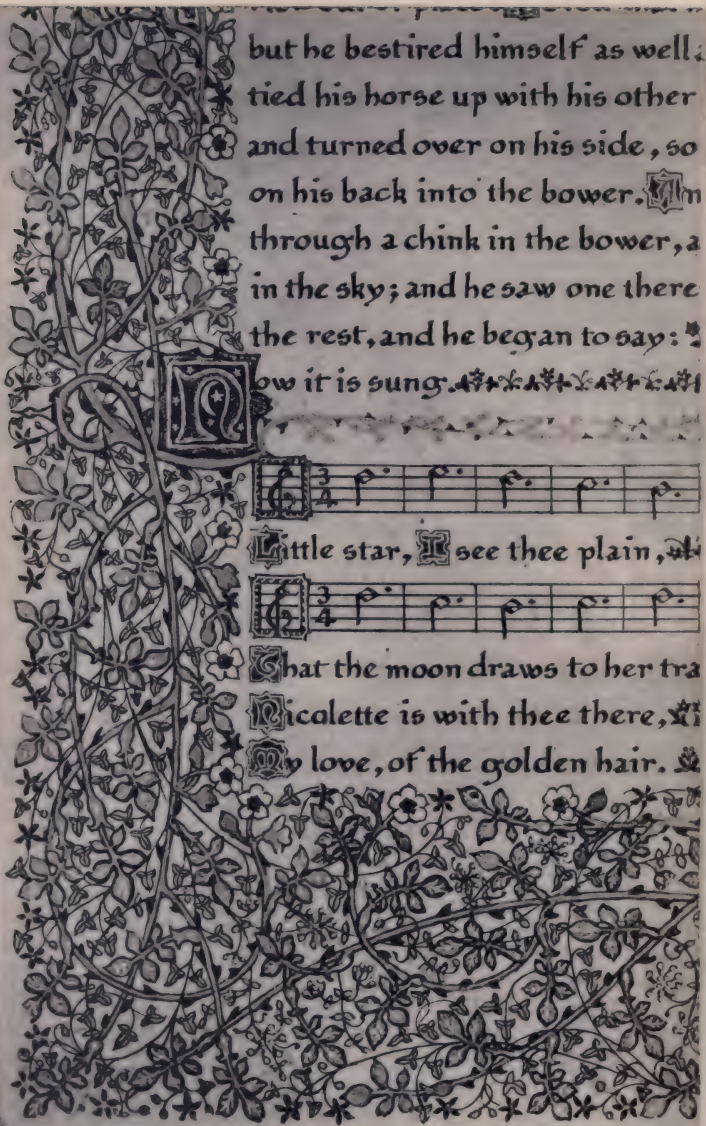 but he bestired himself as well
tied his horse up with his other
and turned over on his side, so
on his back into the bower.
through a chink in the bower, a
in the sky; and he saw one there
the rest, and he began to say:
Now it is sung.
3
4
Little star, I see thee plain,
3
4
That the moon draws to her tra
Nicolette is with thee there,
My love, of the golden hair.